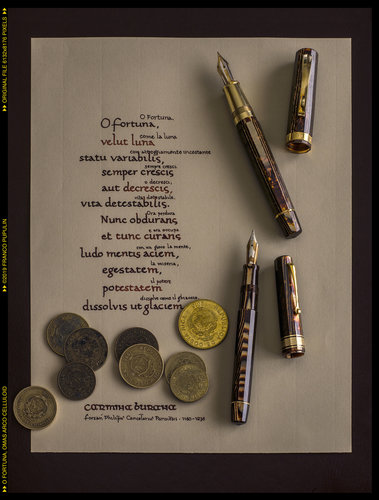 O Fortuna,
O fortuna,
come la luna
velut luna
statu variabilis,
sempre cresci
semper crescis
o decresci;
aut decrescis;
vita detestabile.
vita detestabilis.
Ora perdura
Nunc obdurans
e ora occupa
et tunc curans
con un gioco la mente,
ludo mentis aciem,
la miseria,
egestatem,
il potere
potestatem
dissolve come il ghiaccio
dissolvit ut glaciem
carmina burana
- 1160-1236
>> ORIGINAL FILE 6132x8176 PIXELS
>> ©2019 FRANCO PUPULIN
>> O FORTUNA, OMAS ARCO CELLULOID